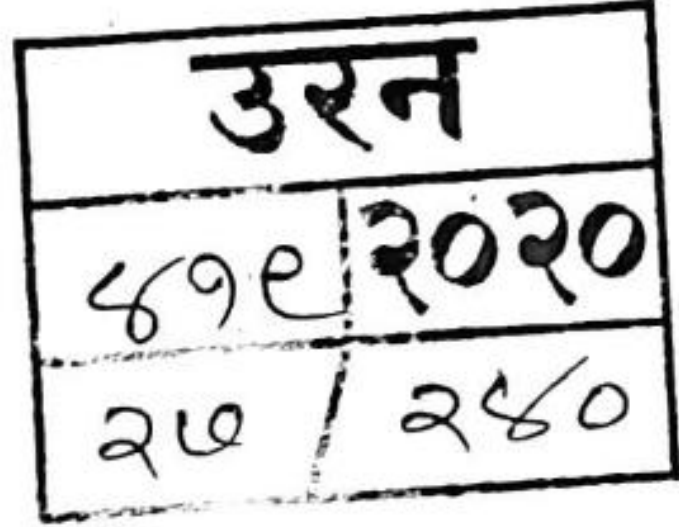 उरन
४१९ २०२०
२७ / २४०